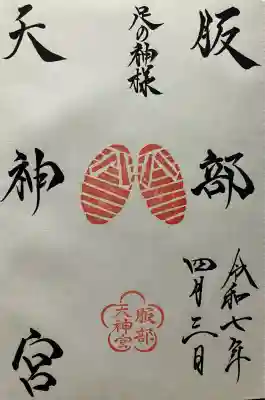 服部
天神宮
足の神様
令和七年
四月三日
服部
天神宮